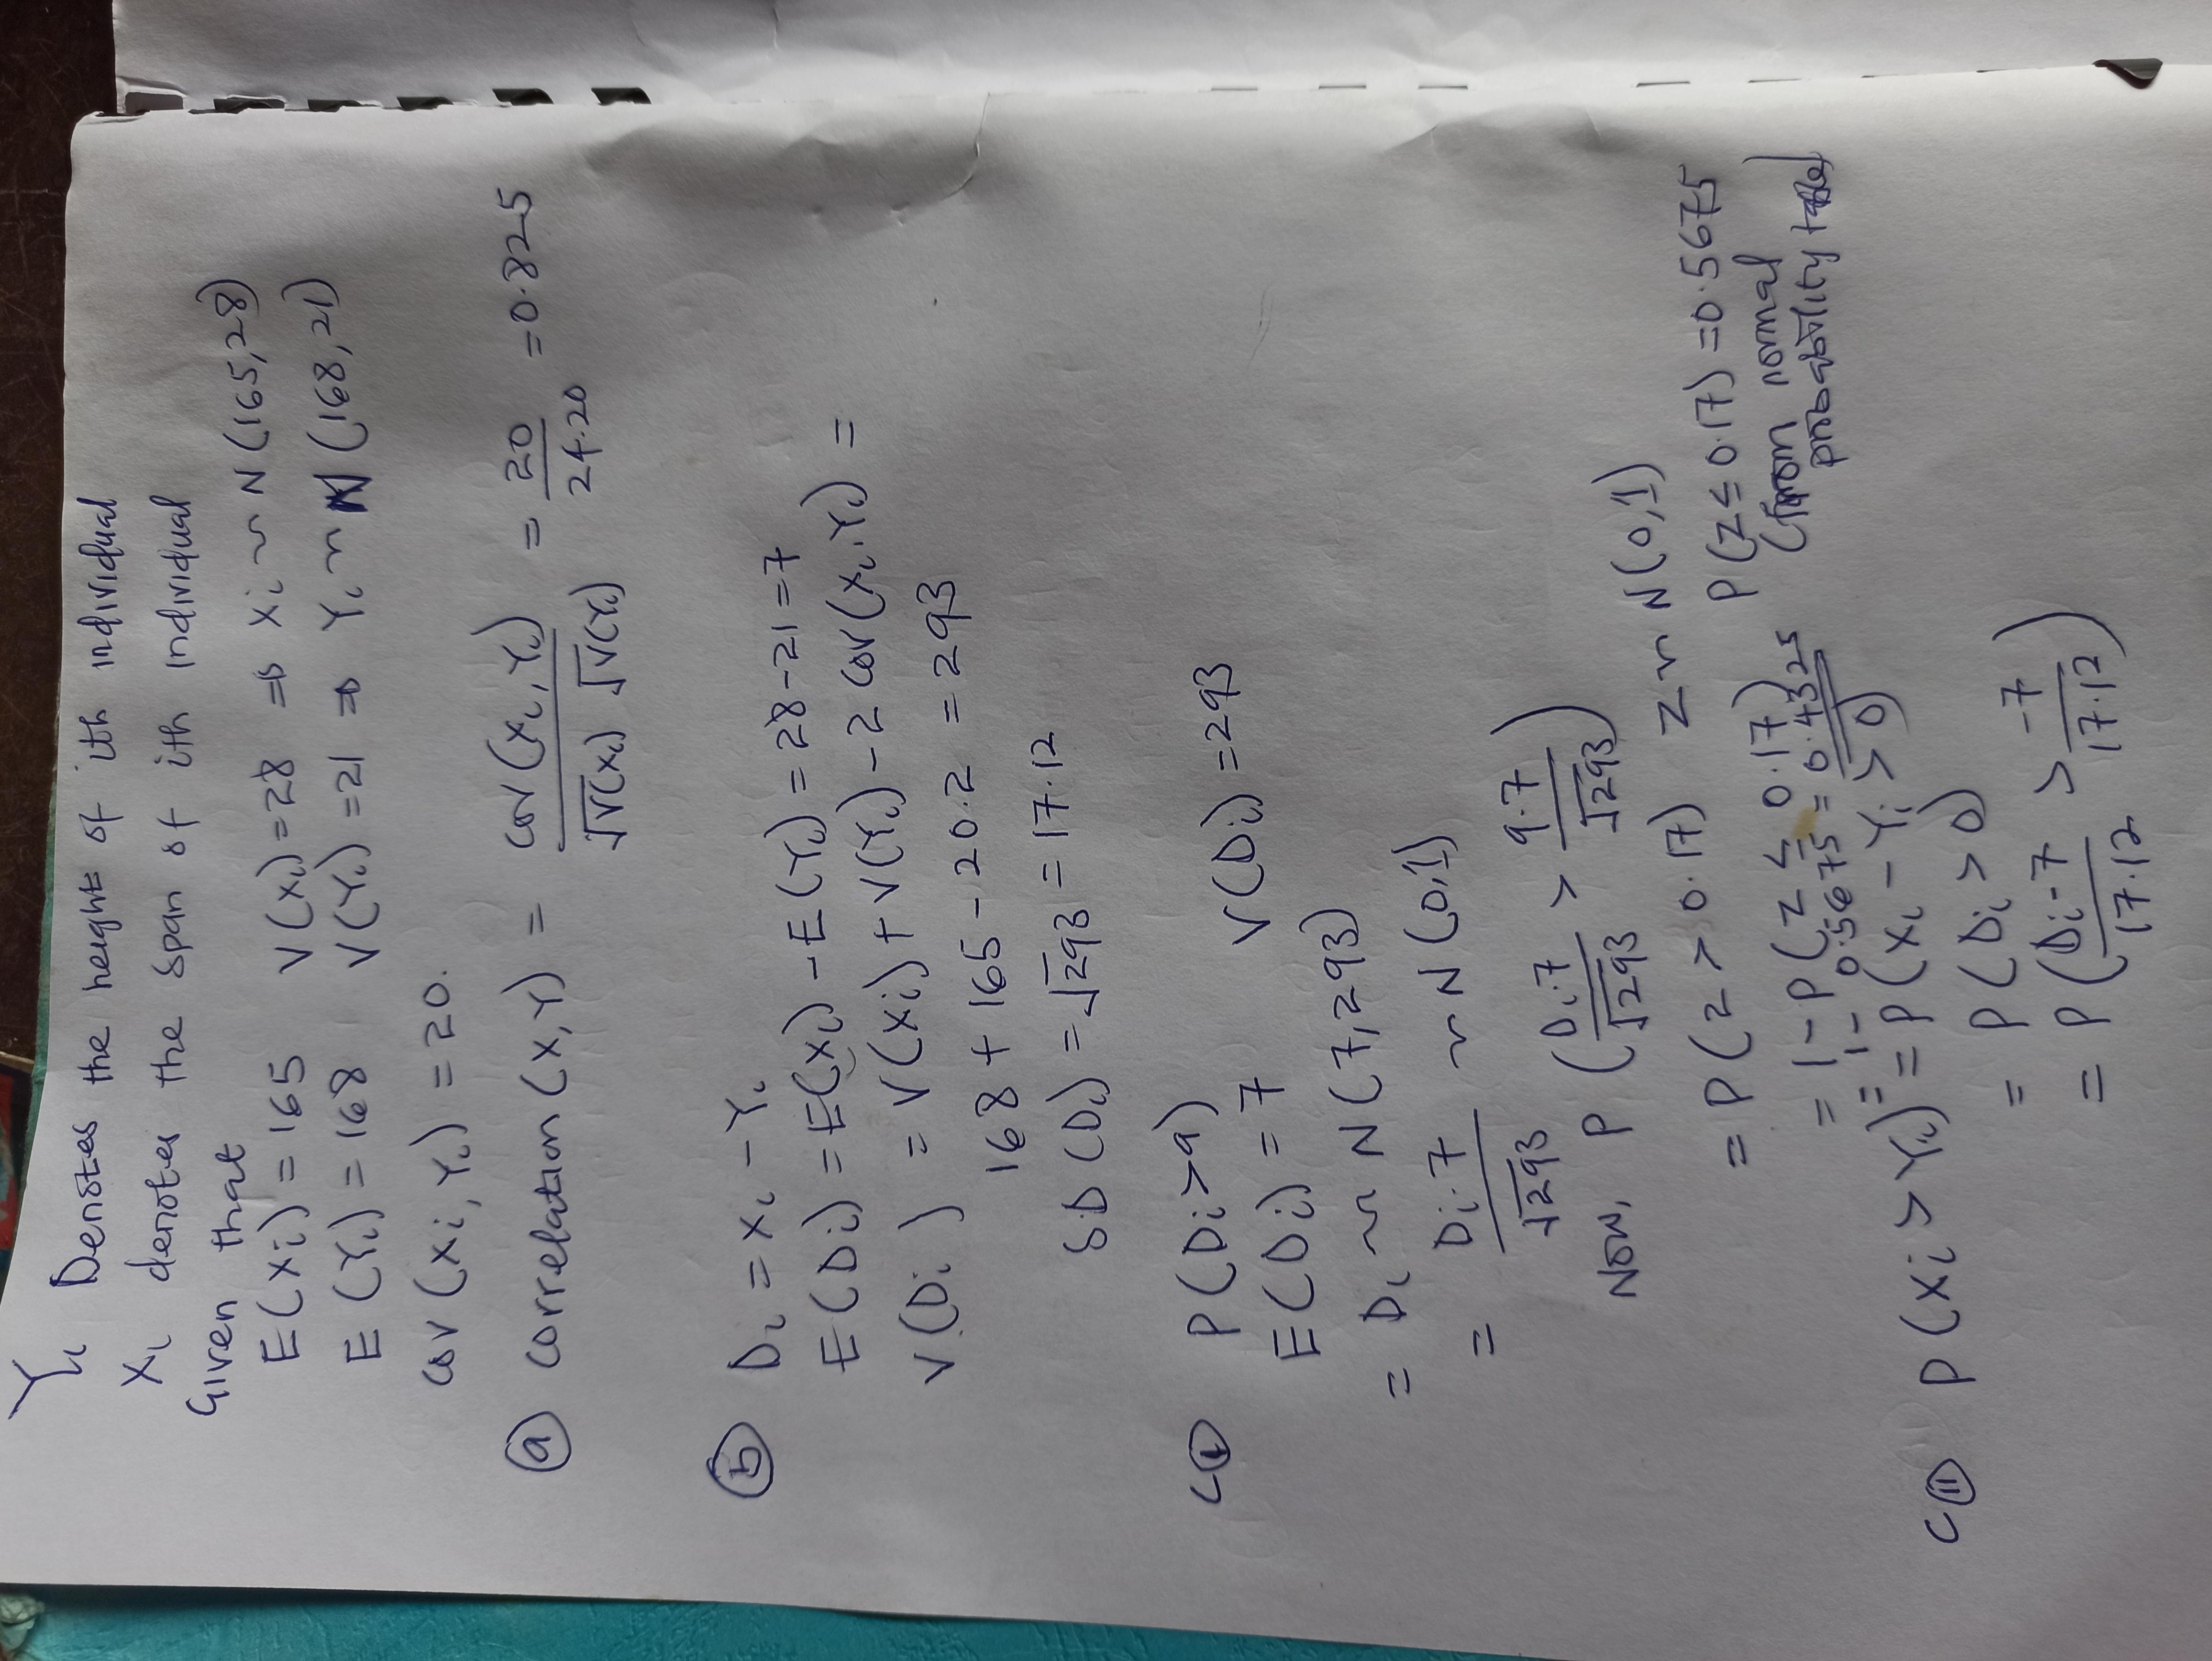 Yi Denotes the height of ith individual
Xi denotes the span of ith individual
Given that
E(Xi) = 165 V(Xi) = 28 ⇒ Xi ~ N(165,28)
E(Yi) = 168 V(Yi) = 21 ⇒ Yi ~ N(168,21)
cov(Xi, Yi) = 20.
(a) correlation (X,Y) = cov(Xi, Yi) / √V(Xi) √V(Yi) = 20 / 24.20 = 0.825
(b) Di = Xi - Yi
E(Di) = E(Xi) - E(Yi) = 28-21 = 7
V(Di) = V(Xi) + V(Yi) - 2 cov(Xi.Yi) =
168 + 165 - 20.2 = 293
SD(Di) = √293 = 17.12
C(I) P(Di>9)
E(Di) = 7 V(Di) = 293
= Di ~ N(7,293)
= Di.7 / √293 ~ N(0,1)
Now, P(Di.7 / √293 > 9.7 / √293)
= P(Z > 0.17) Z ~ N(0,1)
= 1-P(Z ≤ 0.17) P(Z≤0.17) = 0.5675
= 1-0.5675 = 0.4325 (from normal probability table)
C(II) P(Xi > Yi) = P(Xi - Yi > 0)
= P(Di > 0)
= P(Di-7 / 17.12 > -7 / 17.12)